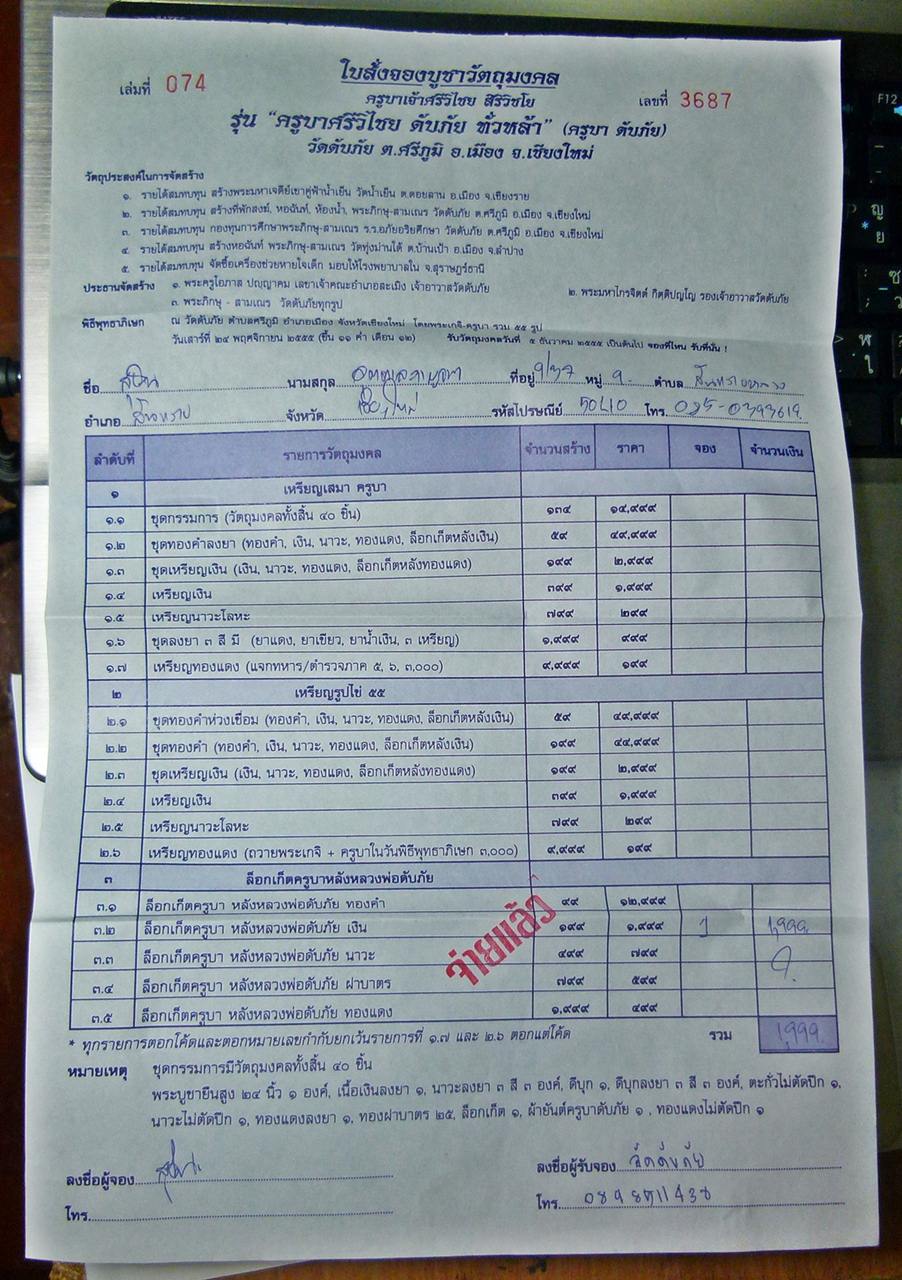 ใบสั่งจองบูชาวัตถุมงคล
เล่มที่ 074
ครูบาเจ้าศรีวิไชย สิริวิชโย
เลขที่ 3687
รุ่น "ครูบาศรีวิไชย ดับภัย ทั่วหล้า" (ครูบา ดับภัย)
วัดดับภัย ต.ศรีภูมิ อ.เมือง จ.เชียงใหม่
วัตถุประสงค์ในการจัดสร้าง
๑. รายได้สมทบทุน สร้างพระมหาเจดีย์เขาคู่ฟ้าน้ำเย็น วัดน้ำเย็น ต.ดอยลาน อ.เมือง จ.เชียงราย
๒. รายได้สมทบทุน สร้างที่พักสงฆ์, หอฉันท์, ห้องน้ำ, พระภิกษุ-สามเณร วัดดับภัย ต.ศรีภูมิ อ.เมือง จ.เชียงใหม่
๓. รายได้สมทบทุน กองทุนการศึกษาพระภิกษุ-สามเณร ร.ร.อภัยอริยศึกษา วัดดับภัย ต.ศรีภูมิ อ.เมือง จ.เชียงใหม่
๔. รายได้สมทบทุน สร้างหอฉันท์ พระภิกษุ-สามเณร วัดทุ่งม่านใต้ ต.บ้านเป้า อ.เมือง จ.ลำปาง
๕. รายได้สมทบทุน จัดซื้อเครื่องช่วยหายใจเด็ก มอบให้โรงพยาบาลใน จ.สุราษฎร์ธานี
ประธานจัดสร้าง ๑. พระครูโอภาส ปญญาคม เลขาเจ้าคณะอำเภอสะเมิง เจ้าอาวาสวัดดับภัย ๒. พระมหาไกรจิตต์ กิตติปญโญ รองเจ้าอาวาสวัดดับภัย
๓. พระภิกษุ - สามเณร วัดดับภัยทุกรูป
พิธีพุทธาภิเษก ณ วัดดับภัย ตำบลศรีภูมิ อำเภอเมือง จังหวัดเชียงใหม่ โดยพระเกจิ-ครูบา รวม ๕๕ รูป
วันเสาร์ที่ ๒๔ พฤศจิกายน ๒๕๕๕ (ขึ้น ๑๑ ค่ำ เดือน ๑๒) รับวัตถุมงคลวันที่ ๕ ธันวาคม ๒๕๕๕ เป็นต้นไป จองที่ไหน รับที่นั่น !
ชื่อ นามสกุล ที่อยู่ 9/37 หมู่ 9 ตำบล สันทรายหลวง
อำเภอ สันทราย จังหวัด เชียงใหม่ รหัสไปรษณีย์ 50210 โทร. 085-0393619
ลำดับที่ รายการวัตถุมงคล จำนวนสร้าง ราคา จอง จำนวนเงิน
๑ เหรียญเสมา ครูบา
๑.๑ ชุดกรรมการ (วัตถุมงคลทั้งสิ้น ๔๐ ชิ้น) ๑๓๔ ๑๔,๙๙๙
๑.๒ ชุดทองคำลงยา (ทองคำ, เงิน, นาวะ, ทองแดง, ล็อกเก็ตหลังเงิน) ๕๙ ๔๙,๙๙๙
๑.๓ ชุดเหรียญเงิน (เงิน, นาวะ, ทองแดง, ล็อกเก็ตหลังทองแดง) ๑๙๙ ๒,๙๙๙
๑.๔ เหรียญเงิน ๓๙๙ ๑,๙๙๙
๑.๕ เหรียญนาวะโลหะ ๗๙๙ ๒๙๙
๑.๖ ชุดลงยา ๓ สี มี (ยาแดง, ยาเขียว, ยาน้ำเงิน, ๓ เหรียญ) ๑,๙๙๙ ๙๙๙
๑.๗ เหรียญทองแดง (แจกทหาร/ตำรวจภาค ๕, ๖, ๓,๐๐๐) ๙,๙๙๙ ๑๙๙
๒ เหรียญรูปไข่ ๕๕
๒.๑ ชุดทองคำห่วงเชื่อม (ทองคำ, เงิน, นาวะ, ทองแดง, ล็อกเก็ตหลังเงิน) ๕๙ ๔๙,๙๙๙
๒.๒ ชุดทองคำ (ทองคำ, เงิน, นาวะ, ทองแดง, ล็อกเก็ตหลังเงิน) ๑๙๙ ๔๔,๙๙๙
๒.๓ ชุดเหรียญเงิน (เงิน, นาวะ, ทองแดง, ล็อกเก็ตหลังทองแดง) ๑๙๙ ๒,๙๙๙
๒.๔ เหรียญเงิน ๓๙๙ ๑,๙๙๙
๒.๕ เหรียญนาวะโลหะ ๗๙๙ ๒๙๙
๒.๖ เหรียญทองแดง (ถวายพระเกจิ + ครูบาในวันพิธีพุทธาภิเษก ๓,๐๐๐) ๙,๙๙๙ ๑๙๙
๓ ล็อกเก็ตครูบาหลังหลวงพ่อดับภัย
๓.๑ ล็อกเก็ตครูบา หลังหลวงพ่อดับภัย ทองคำ ๙๙ ๑๒,๙๙๙
๓.๒ ล็อกเก็ตครูบา หลังหลวงพ่อดับภัย เงิน ๑๙๙ ๑,๙๙๙ 1 1,999
๓.๓ ล็อกเก็ตครูบา หลังหลวงพ่อดับภัย นาวะ ๔๙๙ ๗๙๙
๓.๔ ล็อกเก็ตครูบา หลังหลวงพ่อดับภัย ฝาบาตร ๗๙๙ ๕๙๙
๓.๕ ล็อกเก็ตครูบา หลังหลวงพ่อดับภัย ทองแดง ๑,๙๙๙ ๔๙๙
จ่ายแล้ว
* ทุกรายการตอกโค้ดและตอกหมายเลขกำกับยกเว้นรายการที่ ๑.๗ และ ๒.๖ ตอกแต่โค้ด รวม 1,999
หมายเหตุ ชุดกรรมการมีวัตถุมงคลทั้งสิ้น ๔๐ ชิ้น
พระบูชายืนสูง ๒๔ นิ้ว ๑ องค์, เนื้อเงินลงยา ๑, นาวะลงยา ๓ สี ๓ องค์, ดีบุก ๑, ดีบุกลงยา ๓ สี ๓ องค์, ตะกั่วไม่ตัดปีก ๑,
นาวะไม่ตัดปีก ๑, ทองแดงลงยา ๑, ทองฝาบาตร ๒๕, ล็อกเก็ต ๑, ผ้ายันต์ครูบาดับภัย ๑ , ทองแดงไม่ตัดปีก ๑
ลงชื่อผู้จอง ลงชื่อผู้รับจอง วัดดับภัย
โทร. โทร. 0898511438
F12